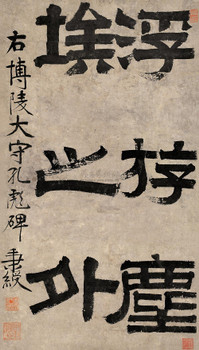 浮斿塵
埃之外
右博陵大守孔彪碑 秉綬